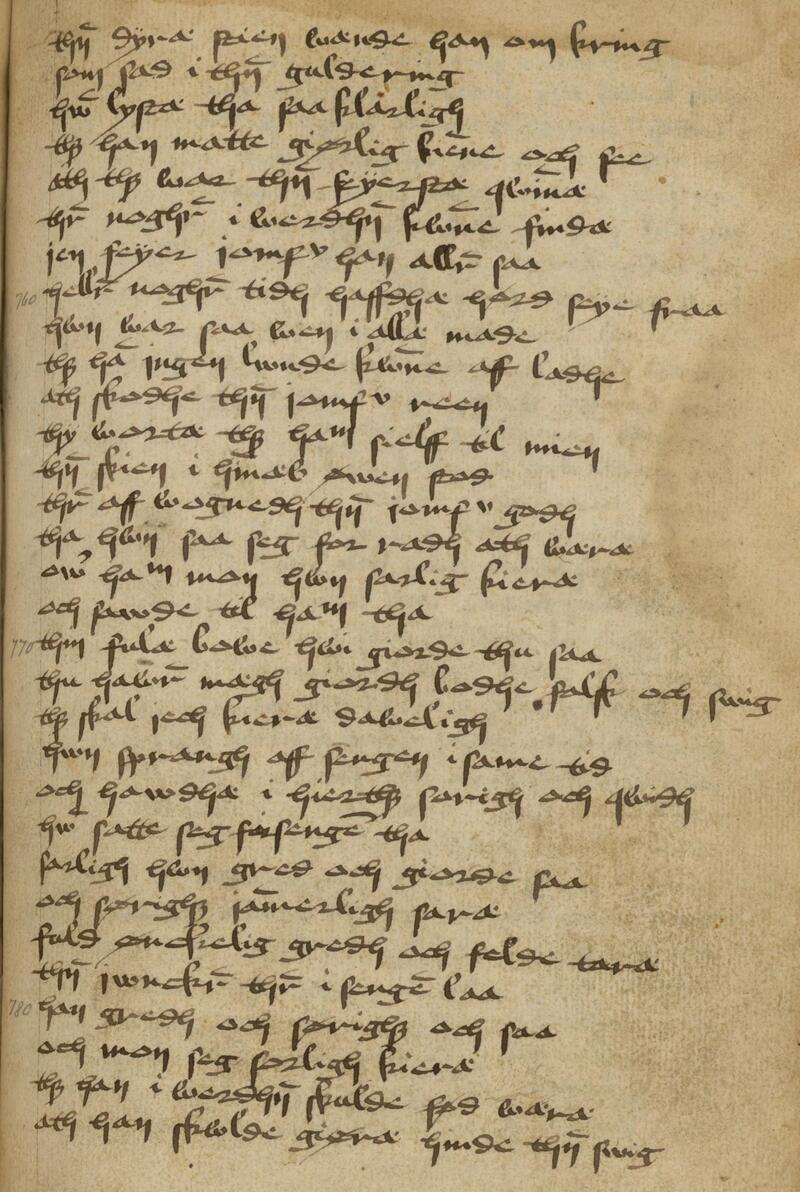 thn̄ dyræ steen wænde han om kring
som sad i thn̄ guldering
hw̄ lystæ tha saa klarligh
thꝫ han matte giørlig kiēne och see
ath thꝫ war thn̄ feyerstæ qwīnæ
thr̄ noghr̄ i werdhn̄ kwōne findæ
jen feyer jomfrv han allr̄ saa
760 hellr̄ noghr̄ tidh haffdhæ hørd seye fraa
hwn war saa wen i allæ made
thꝫ hā ingen lwnde kwōne aff ladhe
ath skodhe thn̄ jomfrv reen
thy wortæ thꝫ ham sielff til mien
thn̄ skien i hīmæls øwen stod
thr̄ aff wognedh thn̄ jomfrv godh
tha hwn saa seg for radh ath wæræ
ow̄ ham mon hwn sarlig kieræ
och sawde til ham tha
770 thin fulæ bowe hwi giorde thu saa
thu hawr̄ mægh giordh bodhe falsk och swig
thꝫ skal jech kieræ daweligh
hwn sprangh aff sengen i same tid
och hawdhæ i hierthꝫ sorigh och qwidh
hw̄ satte seg for sengē tha
sarligh hwn gred och giorde saa
och sørighꝫ jām̄erligh saræ
fuld ønckelig gredh och felde taræ
thn̄ jwnckr̄ thr̄ i sengē laa
780 han gredh och sørighꝫ och saa
och mon seg sørligh kieræ
thꝫ han i werdhn̄ skulde fød wæræ
ath han skwlde giøræ hinde thn̄ swig